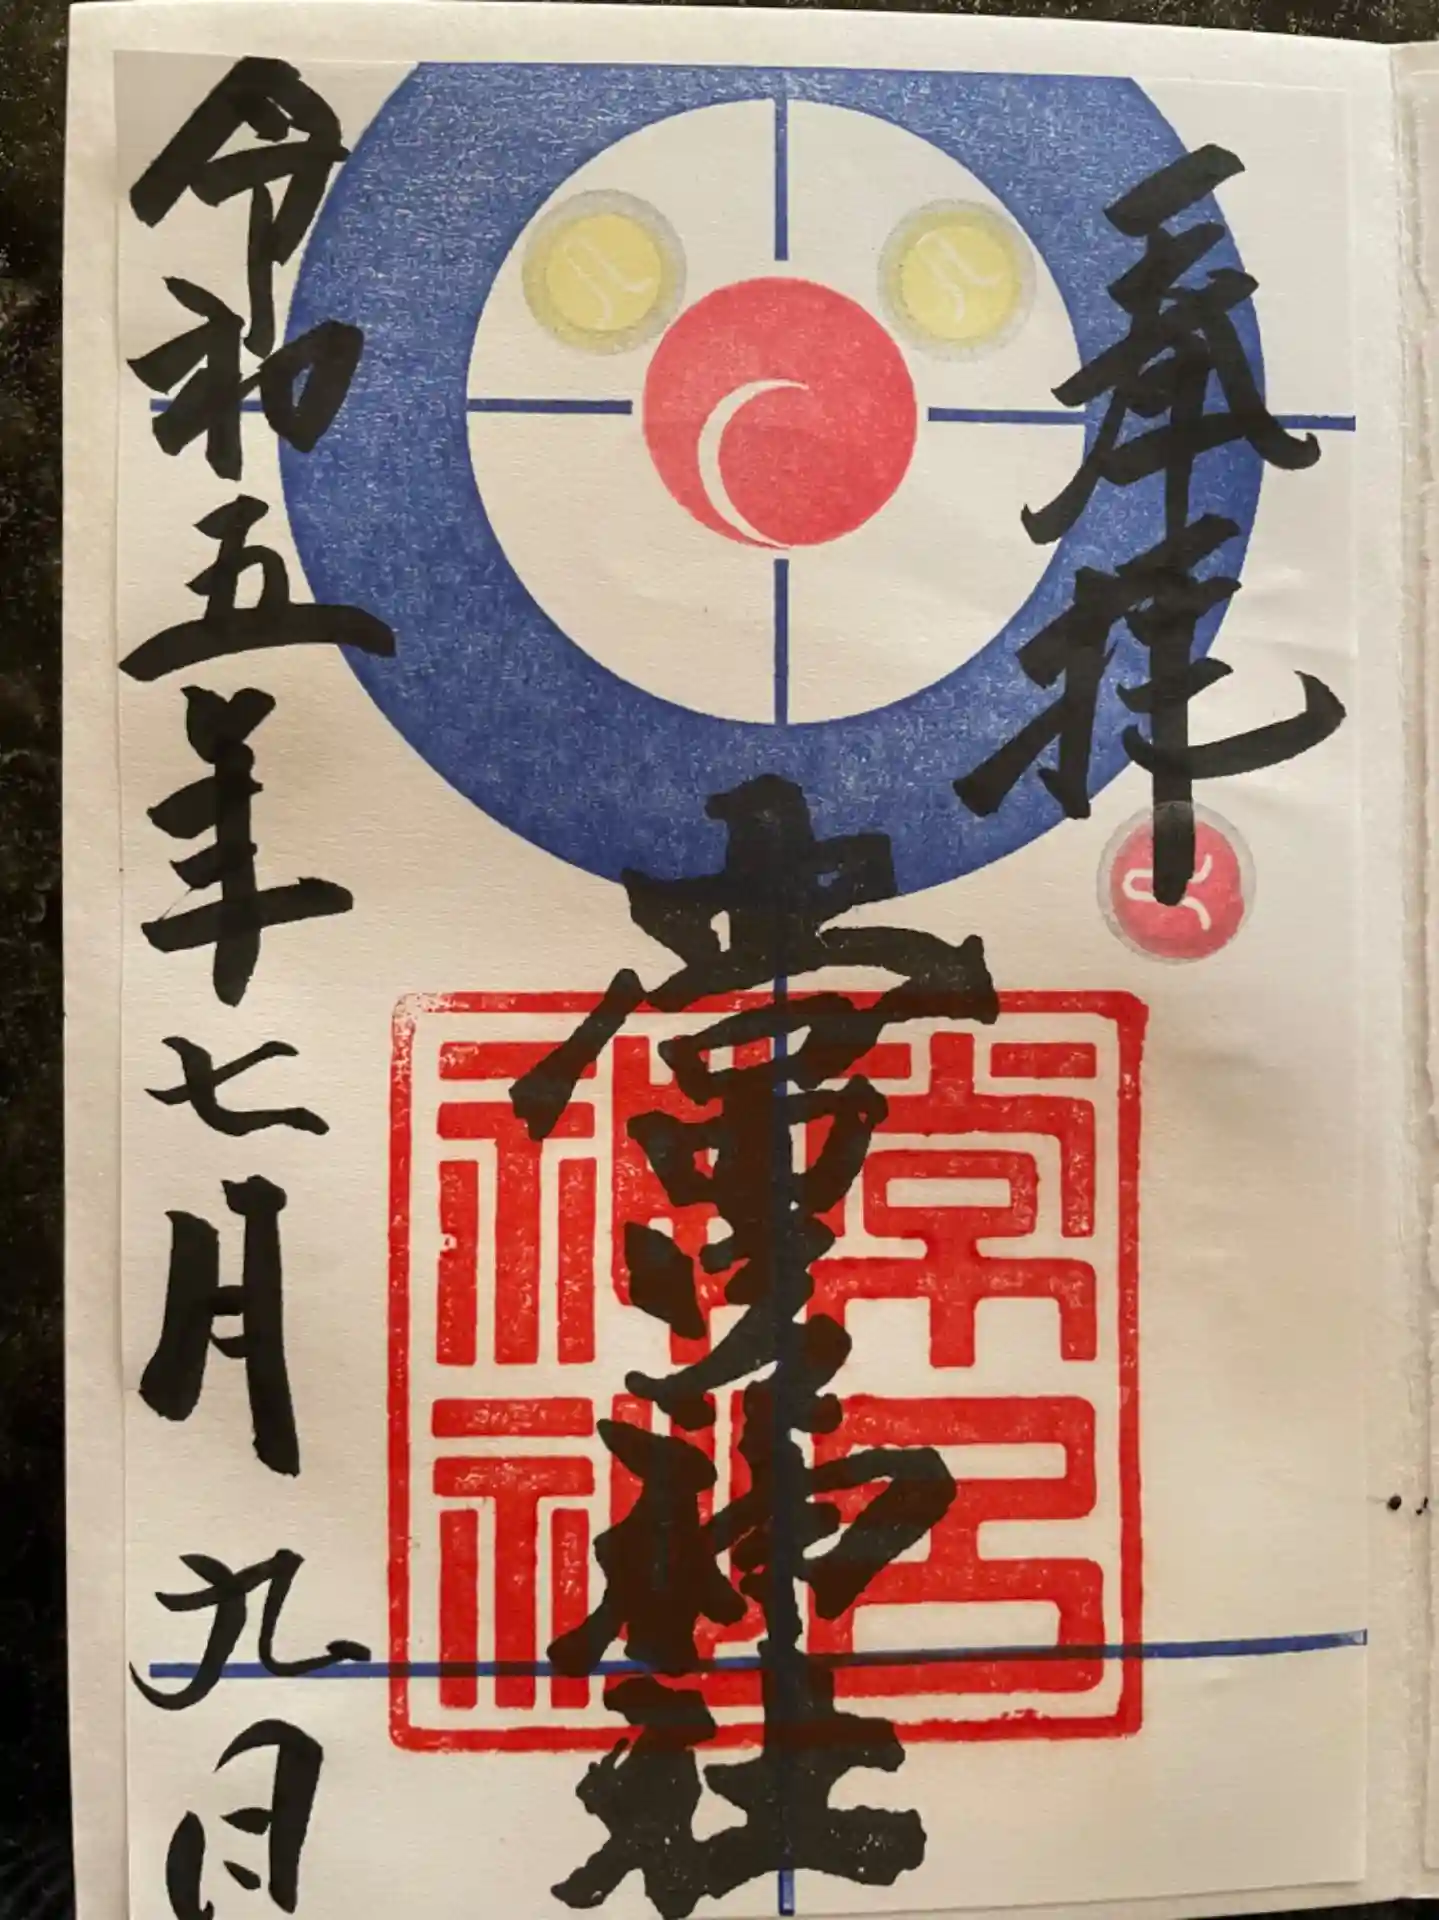 奉拝
常呂神社
常呂
神社
令和五年七月九日